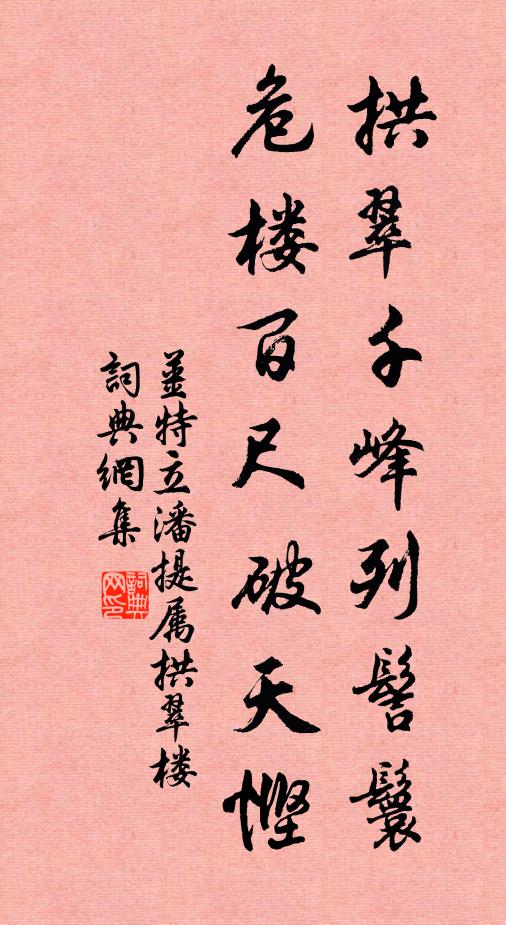 拱翠千峰列髻鬟
危楼百尺破天悭
姜特立潘提属拱翠楼
詞典網集
詞典网印